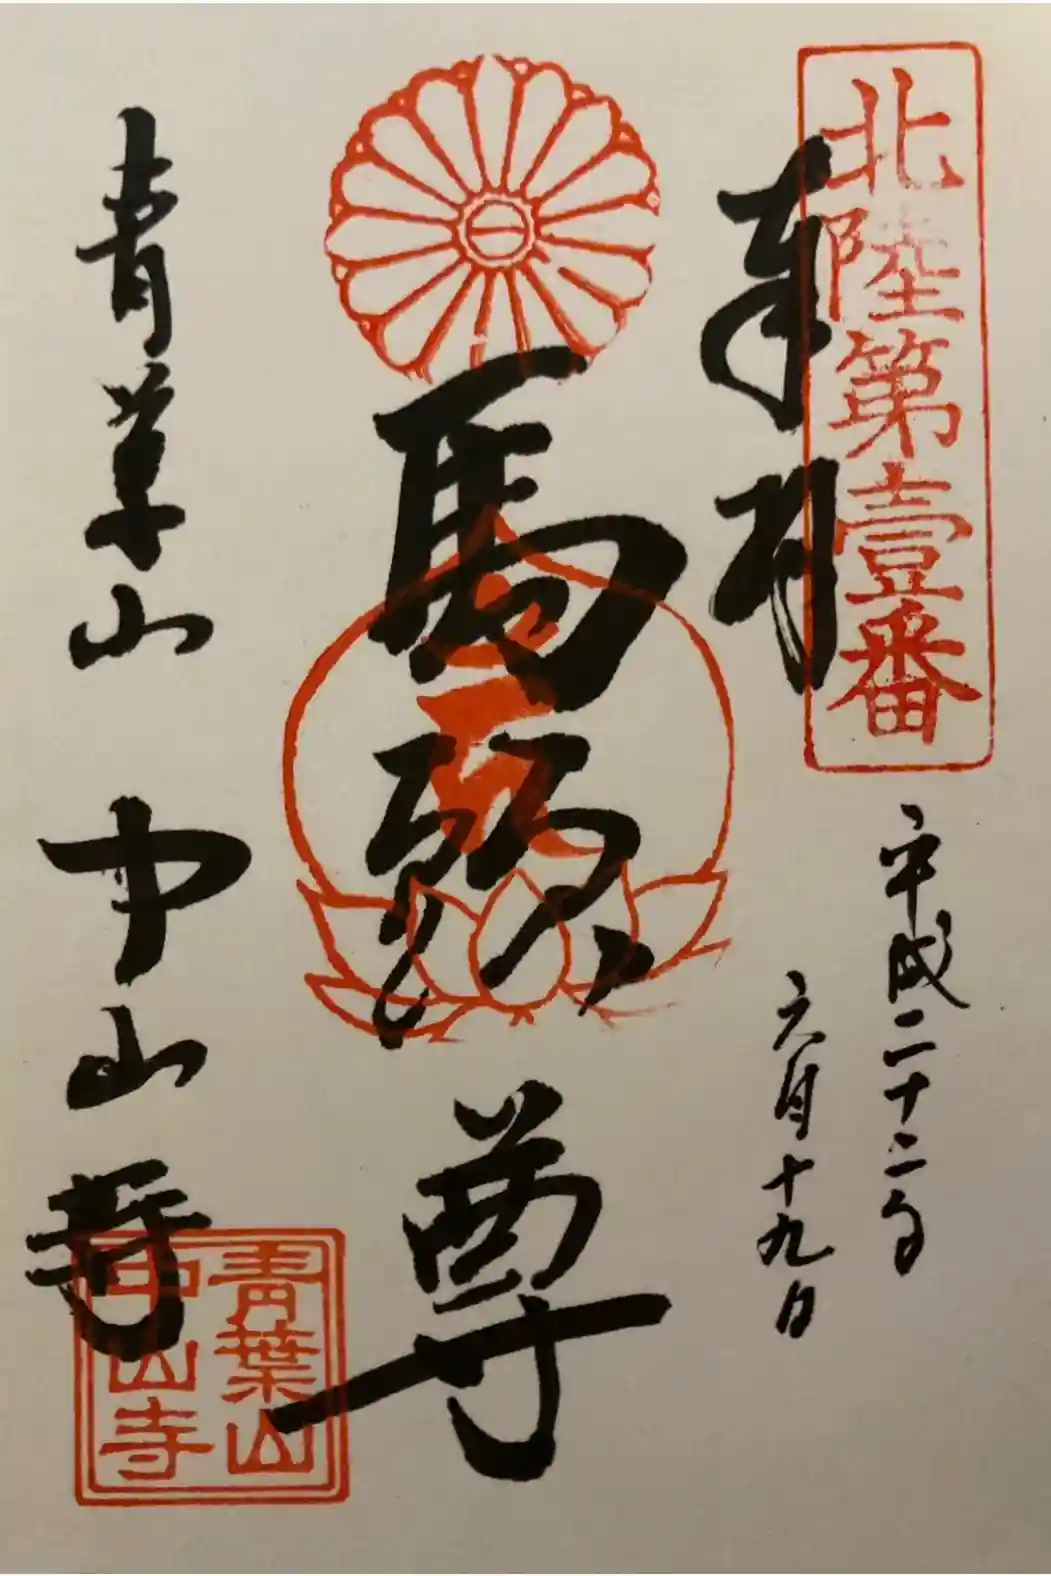 北陸第壹番
奉拝
平成二十二年
六月十九日
馬頭尊
青葉山 中山寺
青葉山
中山寺